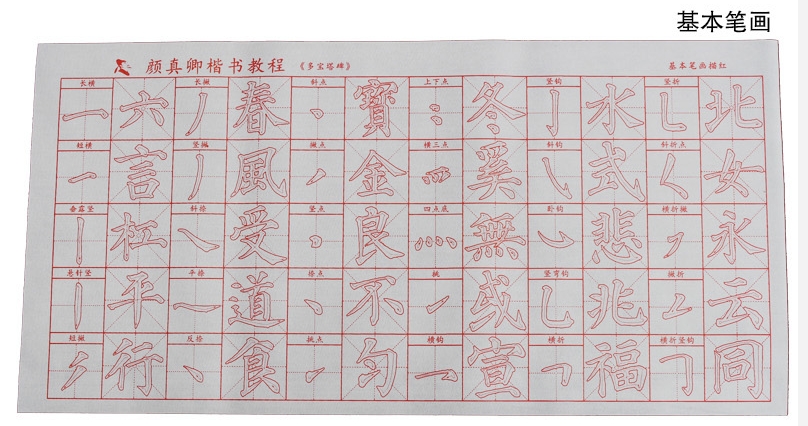 基本笔画
颜真卿楷书教程 《多宝塔碑》 基本笔画描红
长横 长撇 斜点 上下点 竖钩 竖折
六 春 寶 冬 水 北
短横 竖撇 撇点 横三点 斜钩 斜折点
言 風 金 奚 式 女
垂露竖 斜捺 竖点 四点底 卧钩 横折撇
杠 受 良 無 悲 永
悬针竖 平捺 捺点 挑 竖弯钩 撇折
平 道 不 或 兆 云
短撇 反捺 挑点 横钩 横折 横折竖钩
行 食 匀 宣 福 同